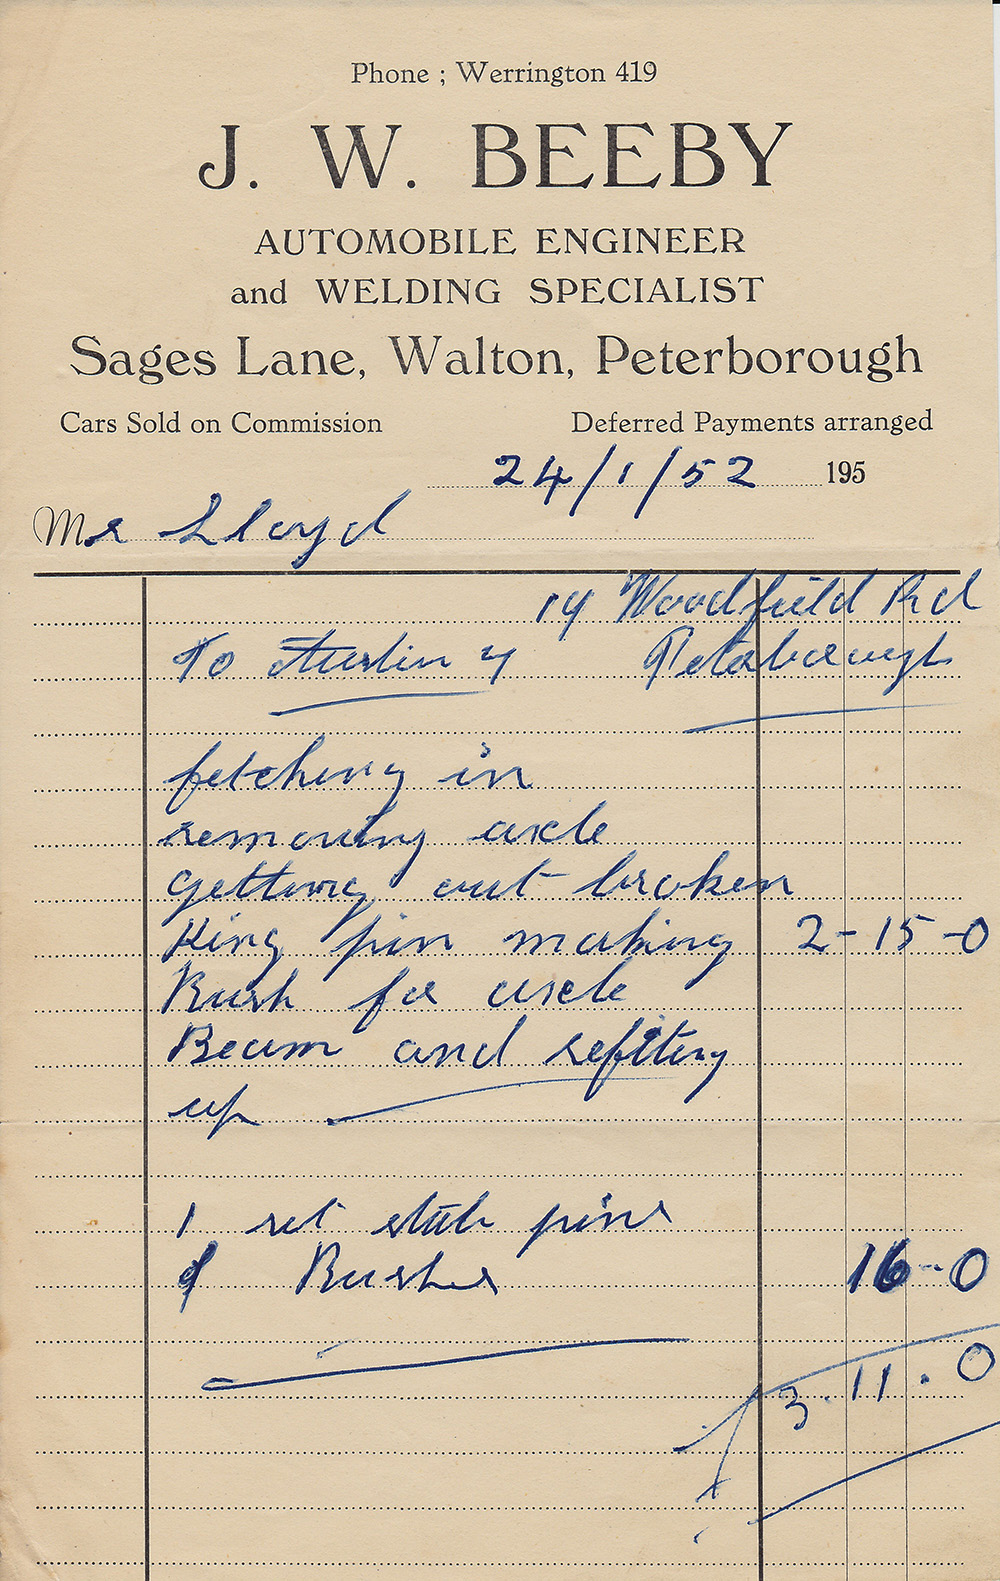 Phone ; Werrington 419
J. W. BEEBY
AUTOMOBILE ENGINEER
and WELDING SPECIALIST
Sages Lane, Walton, Peterborough
Cars Sold on Commission Deferred Payments arranged
24/1/52 195
Mr Lloyd
14 Woodfield Rd
To Austin 7 Peterborough
fetching in
removing axle
getting out broken
King pin making 2-15-0
Bush for axle
Beam and refitting
up
1 set stub pins
& Bushes 16-0
£3.11.0